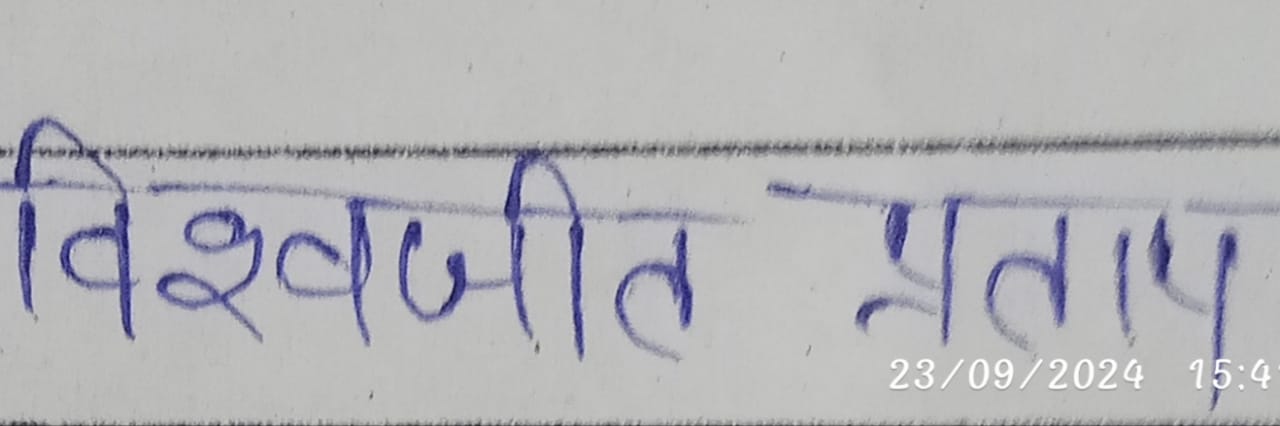 विश्वजीत प्रताप
23/09/2024 15:4